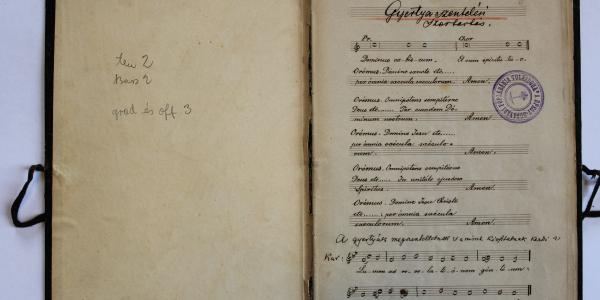 Ten 2
Bass 2
grad és off 3
Gyertya szentelési
Szertartás.
Pr. Chor
Dominus vobiscum. Et cum spiritu tuo.
Orémus. Domine sancte etc.....
per omnia saecula saeculorum. Amen.
Orémus. Omnipotens sempiterne
Deus etc..... Per eundem Dó-
minum nostrum. Amen.
Orémus. Domine Jesu etc.....
per omnia saecula saeculo-
rum. Amen.
Orémus. Omnipotens sempiterne
Deus etc..... In unitáte ejusdem
Spiritus. Amen.
Orémus. Domine Jesu Christe
etc......; per omnia saecula
saeculorum. Amen.
A gyertyák megszenteltetnek s amint kiosztatnak kezdi a
Kar:
Lu-men ad re-ve-la-ti-ó-nem gén-ti-um: